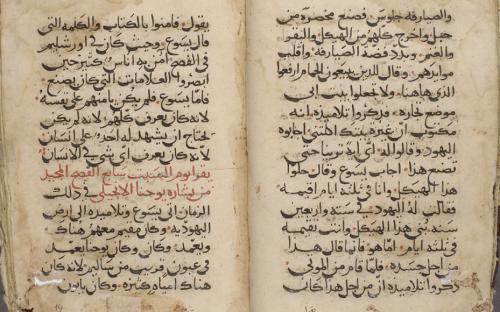 والصيارفه جلوس فصنع مخصرة من
حبل واخرج كلهم من الهيكل والبقر
والغنم وبدد فضة الصيارفه واقلب
موايدهم وقال للدين يبيعون الحمام ارفعوا
الذي هاهنا ولا تجعلوا بيت ابي
موضع تجاره فذكروا تلاميذه انه
مكتوب ان غيرة بيتك اكلتني اجابوه
اليهود وقالوا له اي اية ترينا حتى
تصنع هذا اجاب يسوع وقال حلوا
هذا الهيكل وانا في ثلثة ايام اقيمه
فقالت له اليهود في ستة واربعين
سنه بني هذا الهيكل وانت تقيمه
في ثلثه ايام اما هو فانما قال هذا
من اجل جسده فلما قام من الموتى
ذكروا تلاميذه ان من اجل هذا كان
يقول فامنوا بالكتاب والكلمه التي
قال يسوع وحيث كان في اورشليم
في الفصح امن به اناس كثير حين
ابصروا العلامات التي كان يصنع
فاما يسوع فلم يكن يامنهم على نفسه
لانه كان يعرف كلهم لانه لم يكن
يحتاج ان يشهد له احد على انسان
لانه كان يعرف اي شي في الانسان
يقرا يوم السبت سابع الفصح المجيد
من بشاره يوحنا الانجيلي في ذلك
الزمان اتى يسوع وتلاميذه الى ارض
اليهوديه وكان مقيم معهم هناك
ويعمد وكان يوحنا يعمد
في عيون قريب من ساليم لانه كان
هناك امياه كثيره وكان ياتون